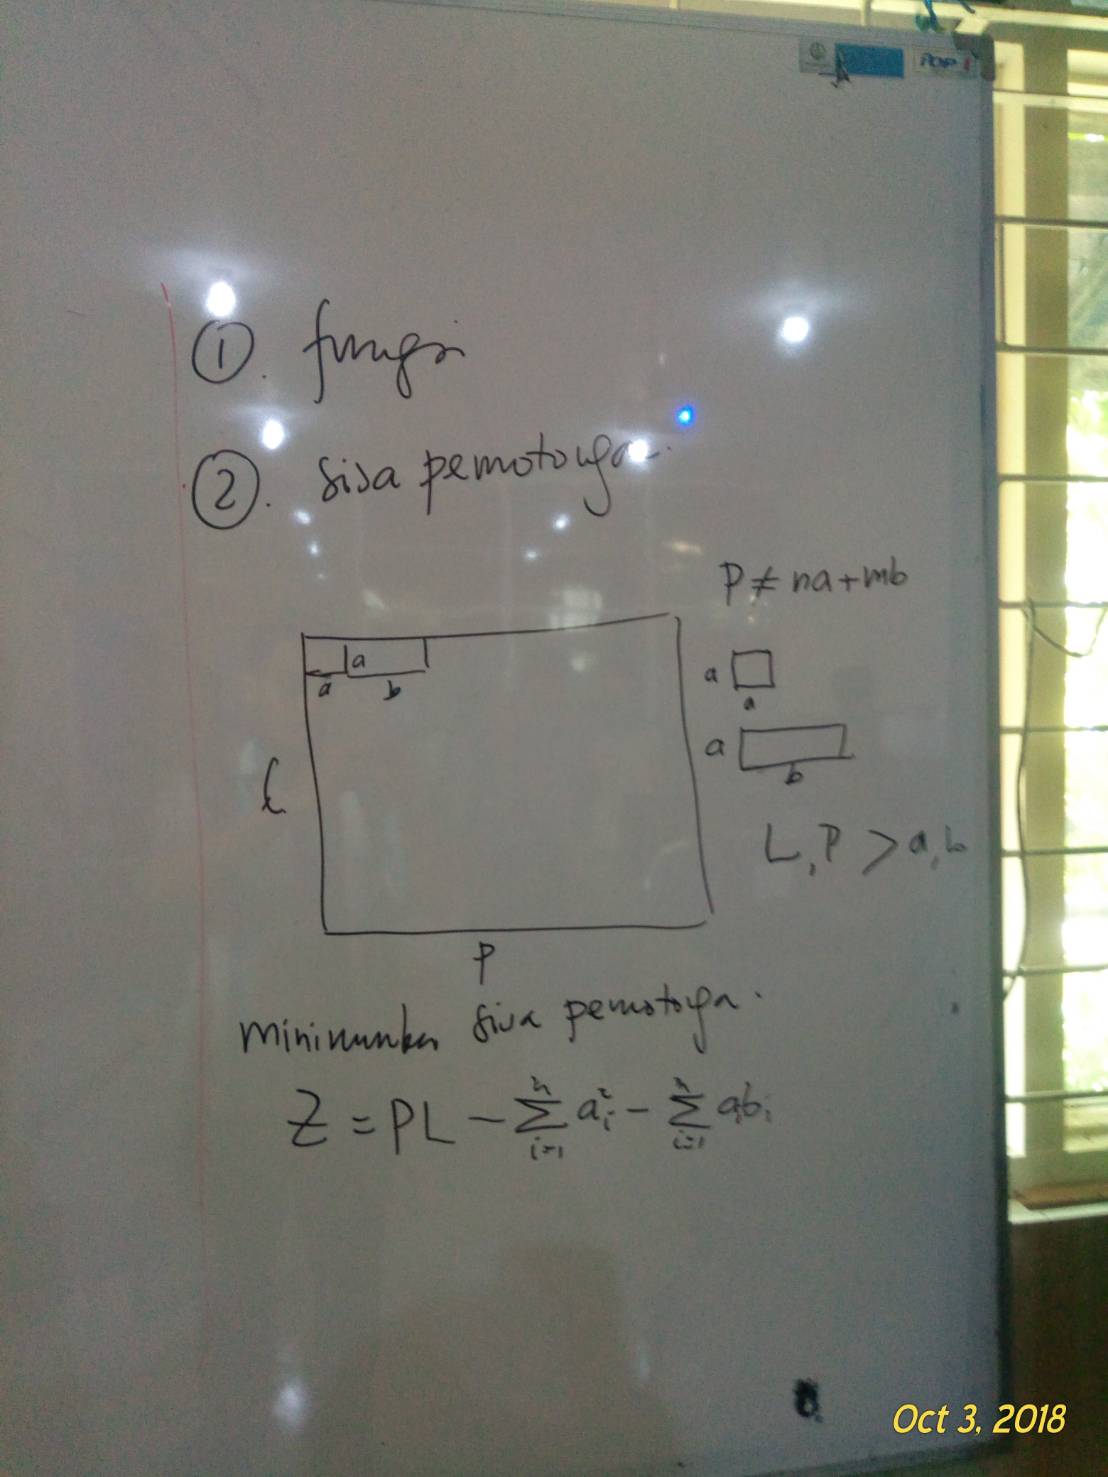 ① . fungsi
② . Sisa pemotongan.
P ≠ na+mb
a
a
a
b
a
a
b
L, P > a, b
l
P
Minimumkan Sisa pemotongan.
Z = PL - ∑ᵢ₌₁ⁿ aᵢ² - ∑ᵢ₌₁ⁿ aᵢbᵢ
Oct 3, 2018